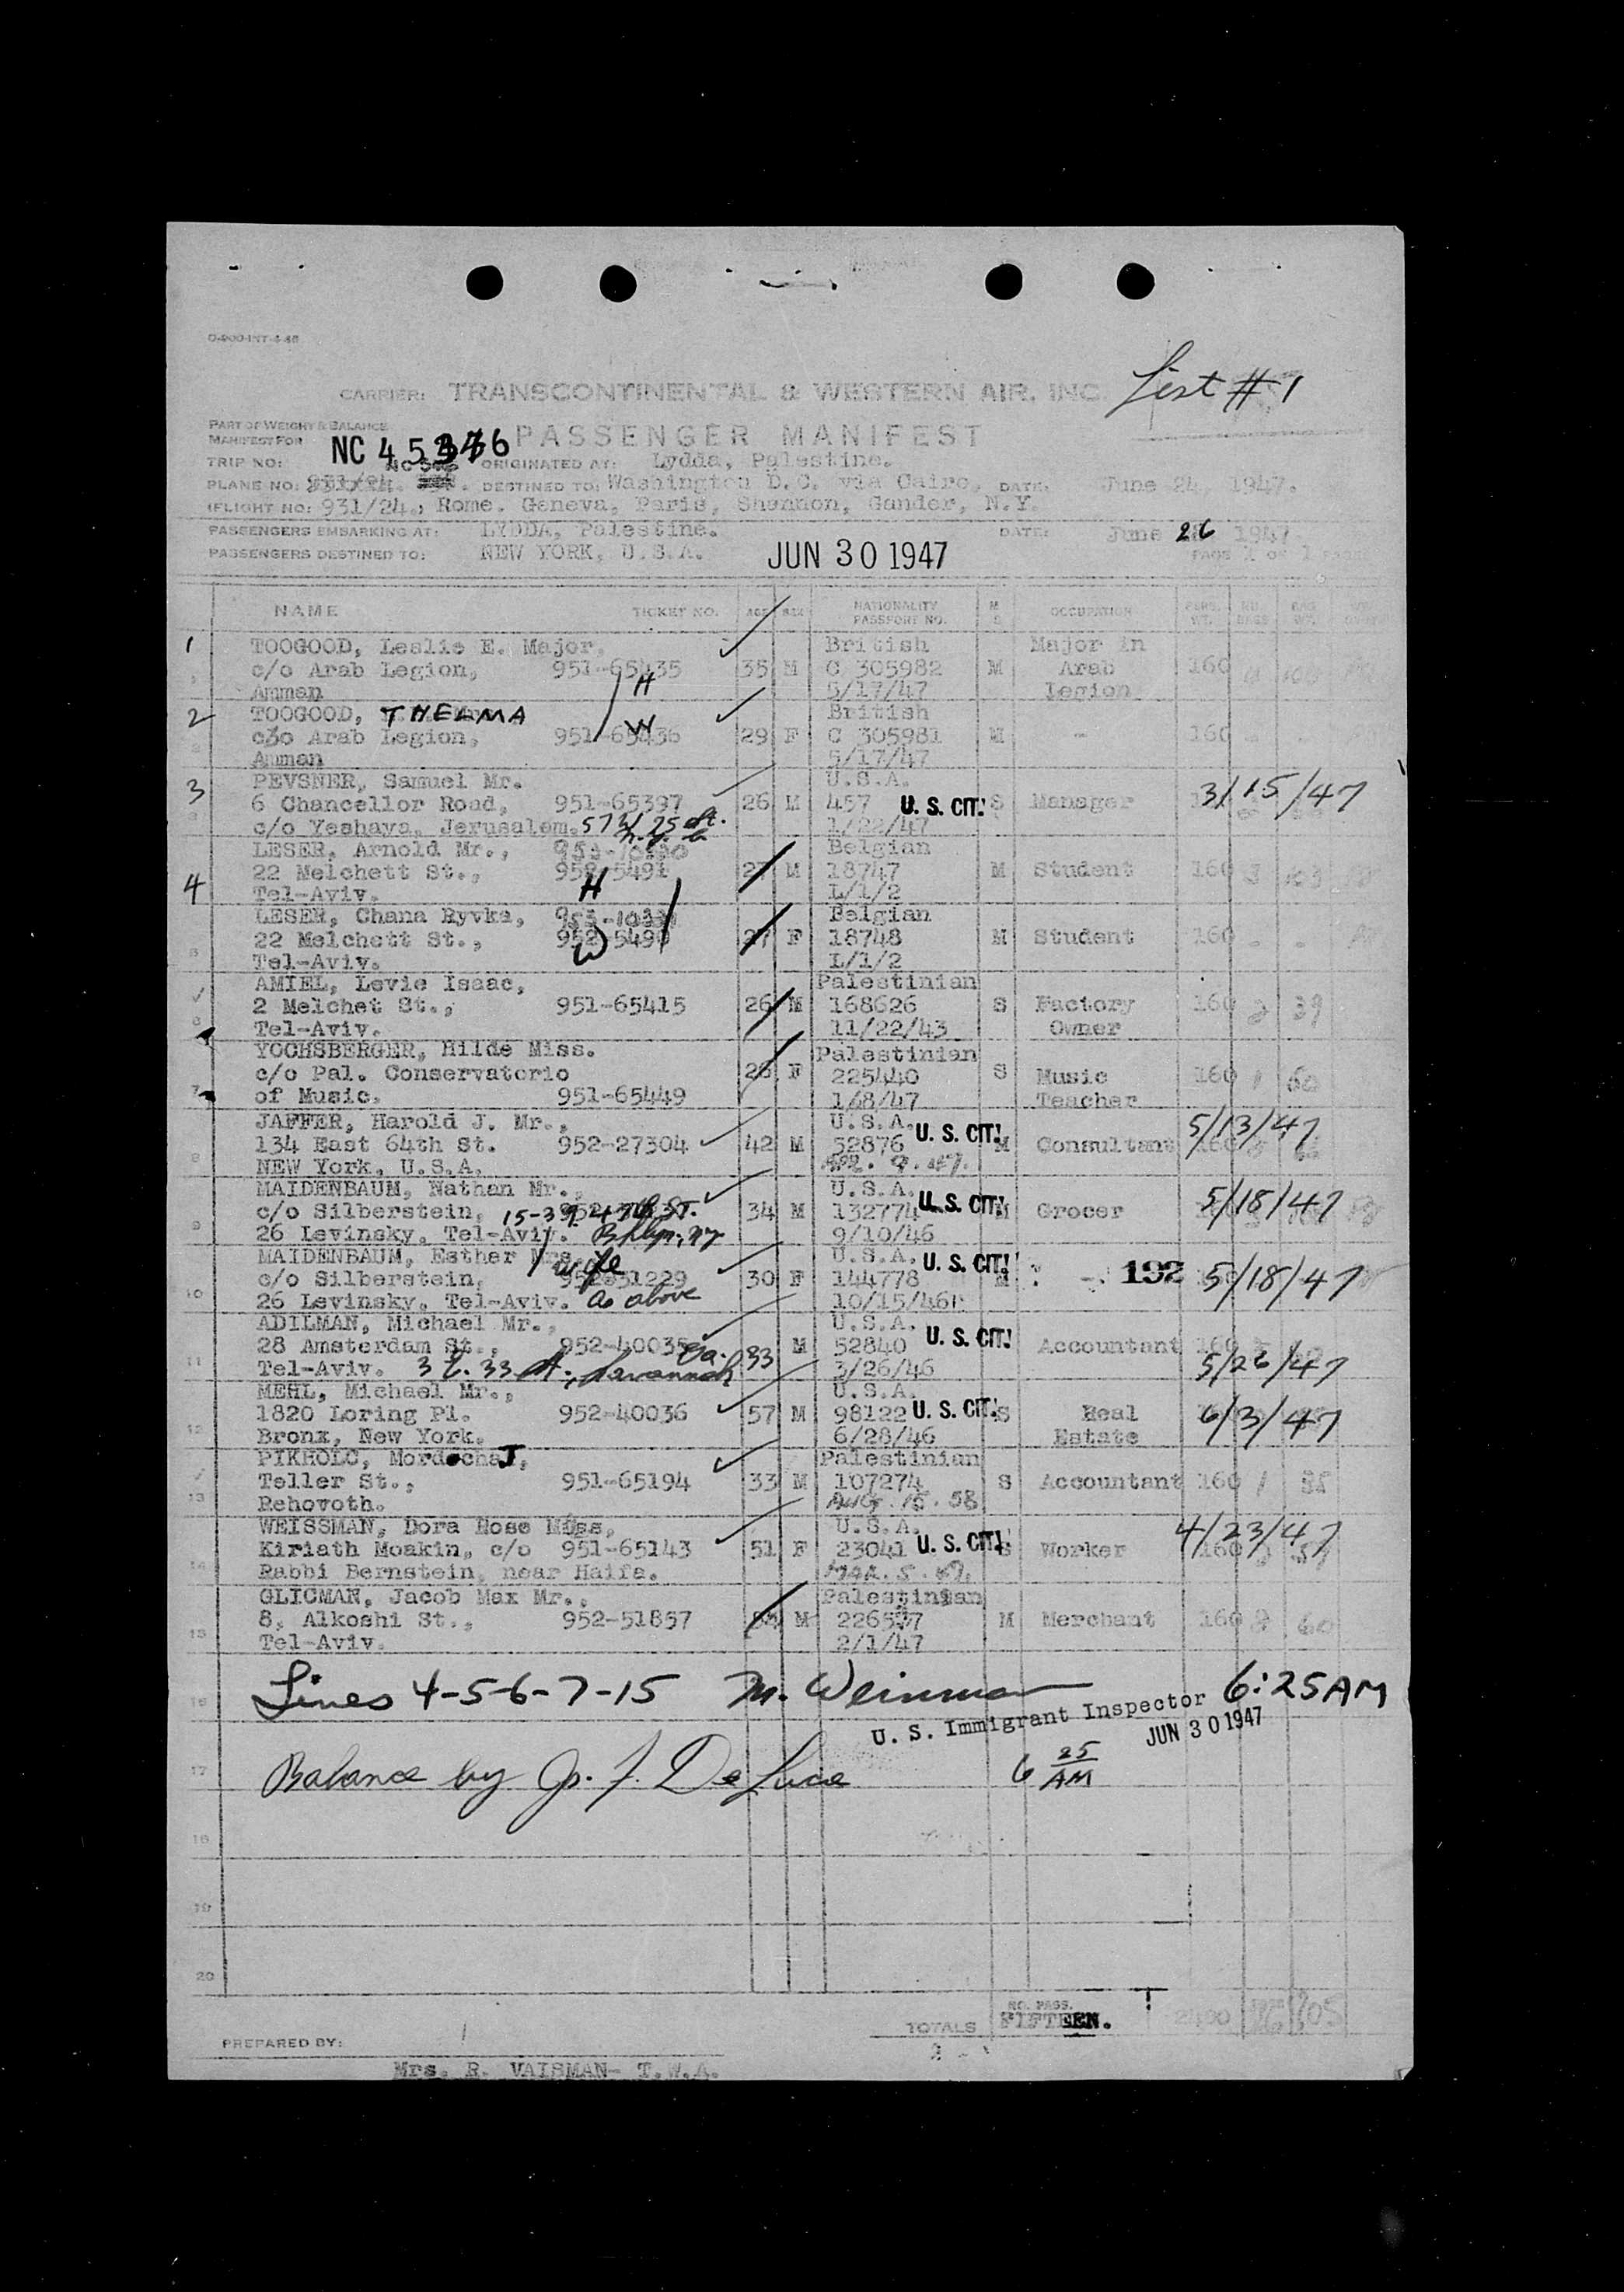 O-900-INT-4-46
List #1
CARRIER: TRANSCONTINENTAL & WESTERN AIR, INC.
PART OF WEIGHT & BALANCE
MANIFEST FOR
PASSENGER MANIFEST
NC 45346
TRIP NO: ORIGINATED AT: Lydda, Palestine.
PLANE NO: DESTINED TO: Washington D.C. via Cairo, DATE: June 24, 1947.
FLIGHT NO: 931/24., Rome. Geneva, Paris, Shannon, Gander, N.Y.
PASSENGERS EMBARKING AT: LYDDA, Palestine. DATE: June 26 1947.
PASSENGERS DESTINED TO: NEW YORK, U.S.A. PAGE 1 OF 1 PAGES
JUN 30 1947
NAME TICKET NO. AGE SEX NATIONALITY PASSPORT NO. M S OCCUPATION PERS. WT. NO. BAGS BAG. WT.
1 TOOGOOD, Leslie E. Major. British Major in
c/o Arab Legion, 951-65435 35 M C 305982 M Arab 160
Amman H 5/17/47 Legion
2 TOOGOOD, THELMA British
c/o Arab Legion, 951-65436 W 29 F C 305981 M - 160
Amman 5/17/47
3 PEVSNER, Samuel Mr. U.S.A.
6 Chancellor Road, 951-65397 26 M 457 U. S. CIT. S Manager 3/15/47
c/o Yeshaya, Jerusalem. 1/22/47
LESER, Arnold Mr., Belgian
22 Melchett St., 952-5491 27 M 18747 M Student 160 3 103
4 Tel-Aviv. H L/1/2
LESER, Chana Ryvka, Belgian
5 22 Melchett St., 952-5490 27 F 18748 M Student 160 - -
Tel-Aviv. W L/1/2
AMIEL, Levie Isaac, Palestinian
2 Melchet St., 951-65415 26 M 168626 S Factory 160 2 39
6 Tel-Aviv. 11/22/43 Owner
YOCHSBERGER, Hilde Miss. Palestinian
c/o Pal. Conservatorio 28 F 225440 S Music 160 1 60
7 of Music. 951-65449 1/8/47 Teacher
JAFFER, Harold J. Mr., U.S.A. 5/13/47
134 East 64th St. 952-27304 42 M 52876 U. S. CIT. M Consultant 160
8 NEW York, U.S.A. APR. 9. 47.
MAIDENBAUM, Nathan Mr., U.S.A.
c/o Silberstein, 15-39 47th ST. 34 M 132774 U. S. CIT. M Grocer 5/18/47
9 26 Levinsky, Tel-Aviv. Bklyn, NY 9/10/46
MAIDENBAUM, Esther Mrs. wife U.S.A.
c/o Silberstein, 952-51229 30 F 144778 U. S. CIT. M - 192 5/18/47
10 26 Levinsky, Tel-Aviv. as above 10/15/46
ADILMAN, Michael Mr., U.S.A.
28 Amsterdam St., 952-40035 33 M 52840 U. S. CIT. Accountant 160
11 Tel-Aviv. 3 E. 33 St., Savannah Ga. 3/26/46 5/26/47
MEHL, Michael Mr., U.S.A.
1820 Loring Pl. 952-40036 57 M 98122 U. S. CIT. S Real 6/3/47
12 Bronx, New York. 6/28/46 Estate
PIKHOLC, MordechaJ, Palestinian
Teller St., 951-65194 33 M 107274 S Accountant 160 1
13 Rehovoth. AUG. 15. 58
WEISSMAN, Dora Rose Miss, U.S.A. 4/23/47
Kiriath Moakin, c/o 951-65143 51 F 23041 U. S. CIT. S Worker 160
14 Rabbi Bernstein, near Haifa. MAR. 5. 47.
GLICMAN, Jacob Max Mr., Palestinian
8, Alkoshi St., 952-51857 M M Merchant 160 2 60
15 Tel-Aviv. 2/1/47
16 Lines 4-5-6-7-15 M. Weinman 6:25AM
U. S. Immigrant Inspector JUN 30 1947
17 Balance by Jos. F. De Luca 6 25 AM
18
19
20
TOTALS NO. PASS. FIFTEEN. 2400
PREPARED BY:
Mrs. R. VAISMAN- T.W.A.